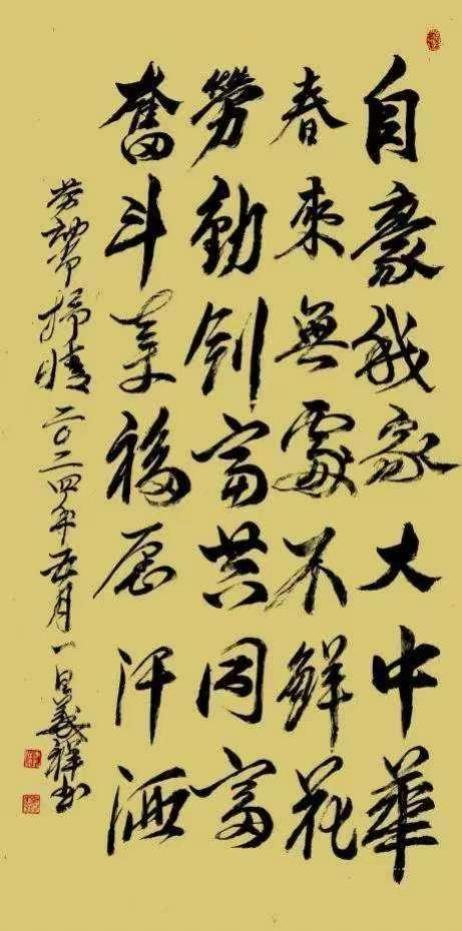 自豪我家大中華
春來無處不鮮花
勞動創富共同富
奮斗幸福汗洒
劳动节抒情二〇二四年五月一日義祥书